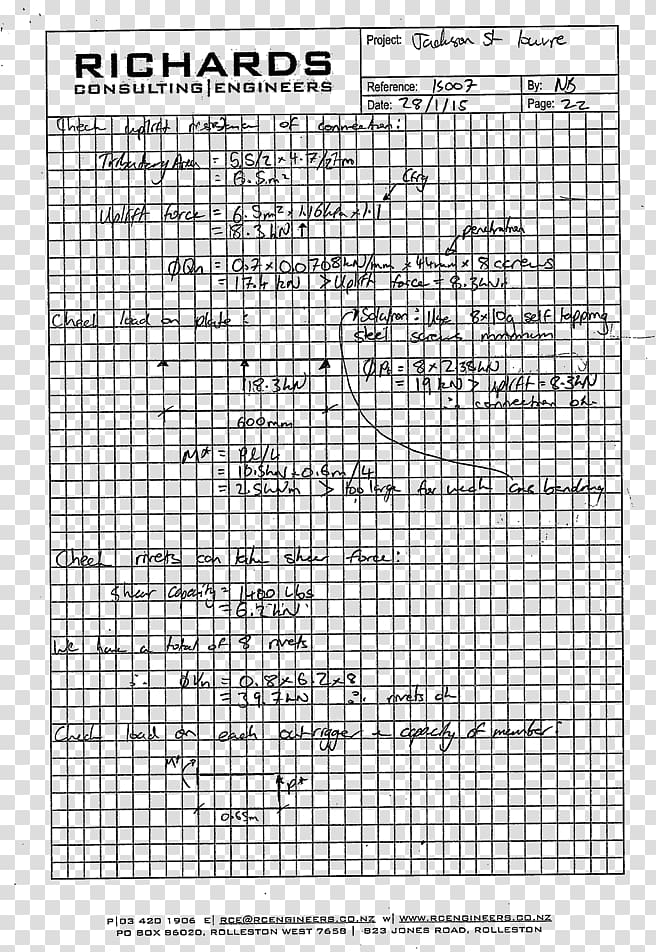 RICHARDS
CONSULTING|ENGINEERS
Project: Jackson St louvre
Reference: 15007 By: NB
Date: 28/1/15 Page: 22
Check uplift resistance of connection:
Tributary Area = 5.5/2 × 4.7/2
= 6.5m²
Cfig
Uplift force = 6.5m² × 1.16kPa × 1.1
= 8.3kN ↑
penetration
ϕQn = 0.7 × 0.0708kN/mm × 44mm × 8 screws
= 17.4 kN > Uplift force = 8.3kN
Check load on plate:
Solution: Use 8×10g self tapping
steel screws minimum
8.3kN
ϕP = 8 × 2.38kN
= 19 kN > uplift = 8.3kN
∴ connection ok.
600mm
M* = Pl/4
= 0.6m/4
= 2.5kNm > too large for weak bending
Check rivets can take shear force:
Shear capacity = 1400 Lbs
= 6.2kN
We have a total of 8 rivets
∴ ϕVn = 0.8×6.2×8
= 39.7kN ∴ rivets ok
Check load on each outrigger + capacity of member:
M*
P*
0.65m
P|03 420 1906 E| RCE@RCENGINEERS.CO.NZ W| WWW.RCENGINEERS.CO.NZ
PO BOX 86020, ROLLESTON WEST 7658 | 823 JONES ROAD, ROLLESTON